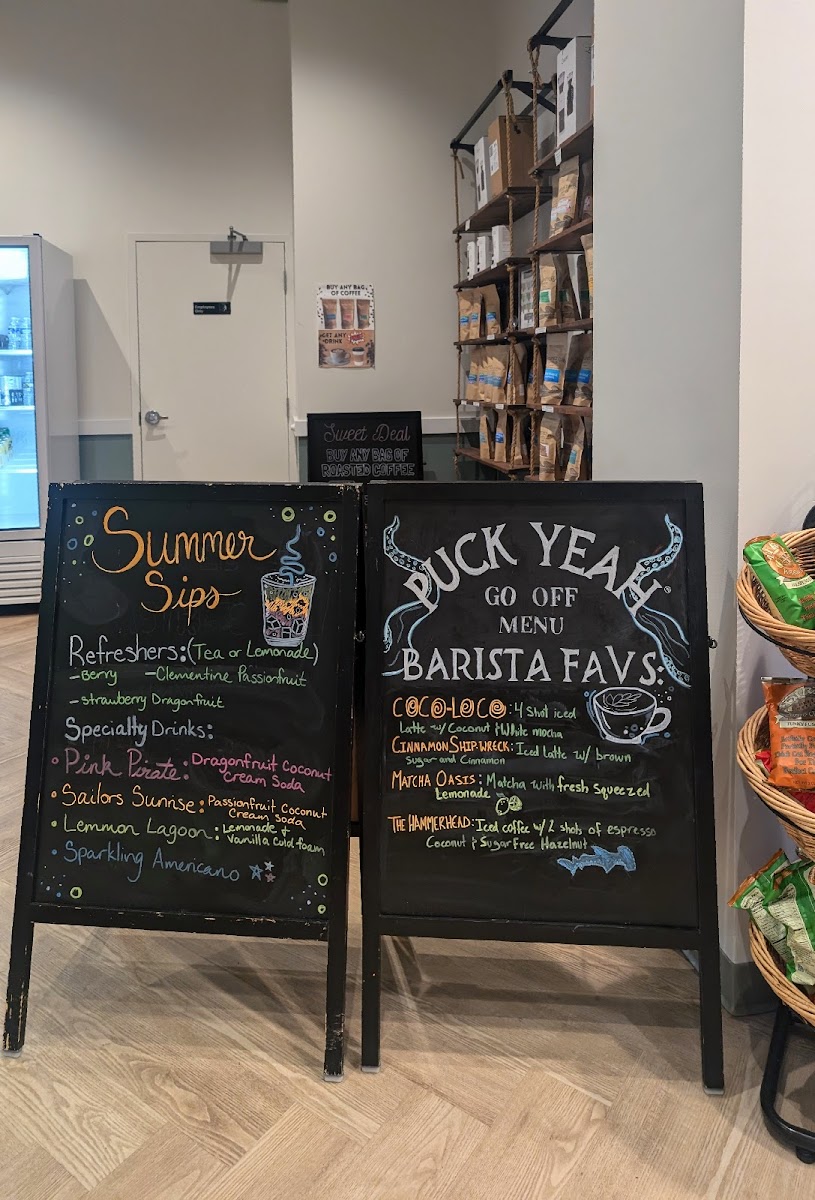 Employees
Only
BUY ANY BAG
OF COFFEE
GET ANY
DRINK
Sweet Deal
BUY ANY BAG OF
ROASTED COFFEE
Summer
Sips
Refreshers:(Tea or Lemonade)
-Berry -Clementine Passionfruit
-strawberry Dragonfruit
Specialty Drinks:
• Pink Pirate: Dragonfruit Coconut
cream Soda
• Sailors Sunrise: Passionfruit Coconut
Cream Soda
• Lemmon Lagoon: Lemonade +
Vanilla Cold foam
• Sparkling Americano
PUCK YEAH
GO OFF
MENU
BARISTA FAVS:
COCO-LOCO: 4 Shot iced
Latte w/ Coconut & White mocha
CINNAMON SHIP-WRECK: Iced Latte w/ brown
Sugar and Cinnamon
MATCHA OASIS: Matcha with fresh squeezed
Lemonade
THE HAMMERHEAD: Iced coffee w/ 2 shots of espresso
Coconut & Sugar Free Hazelnut